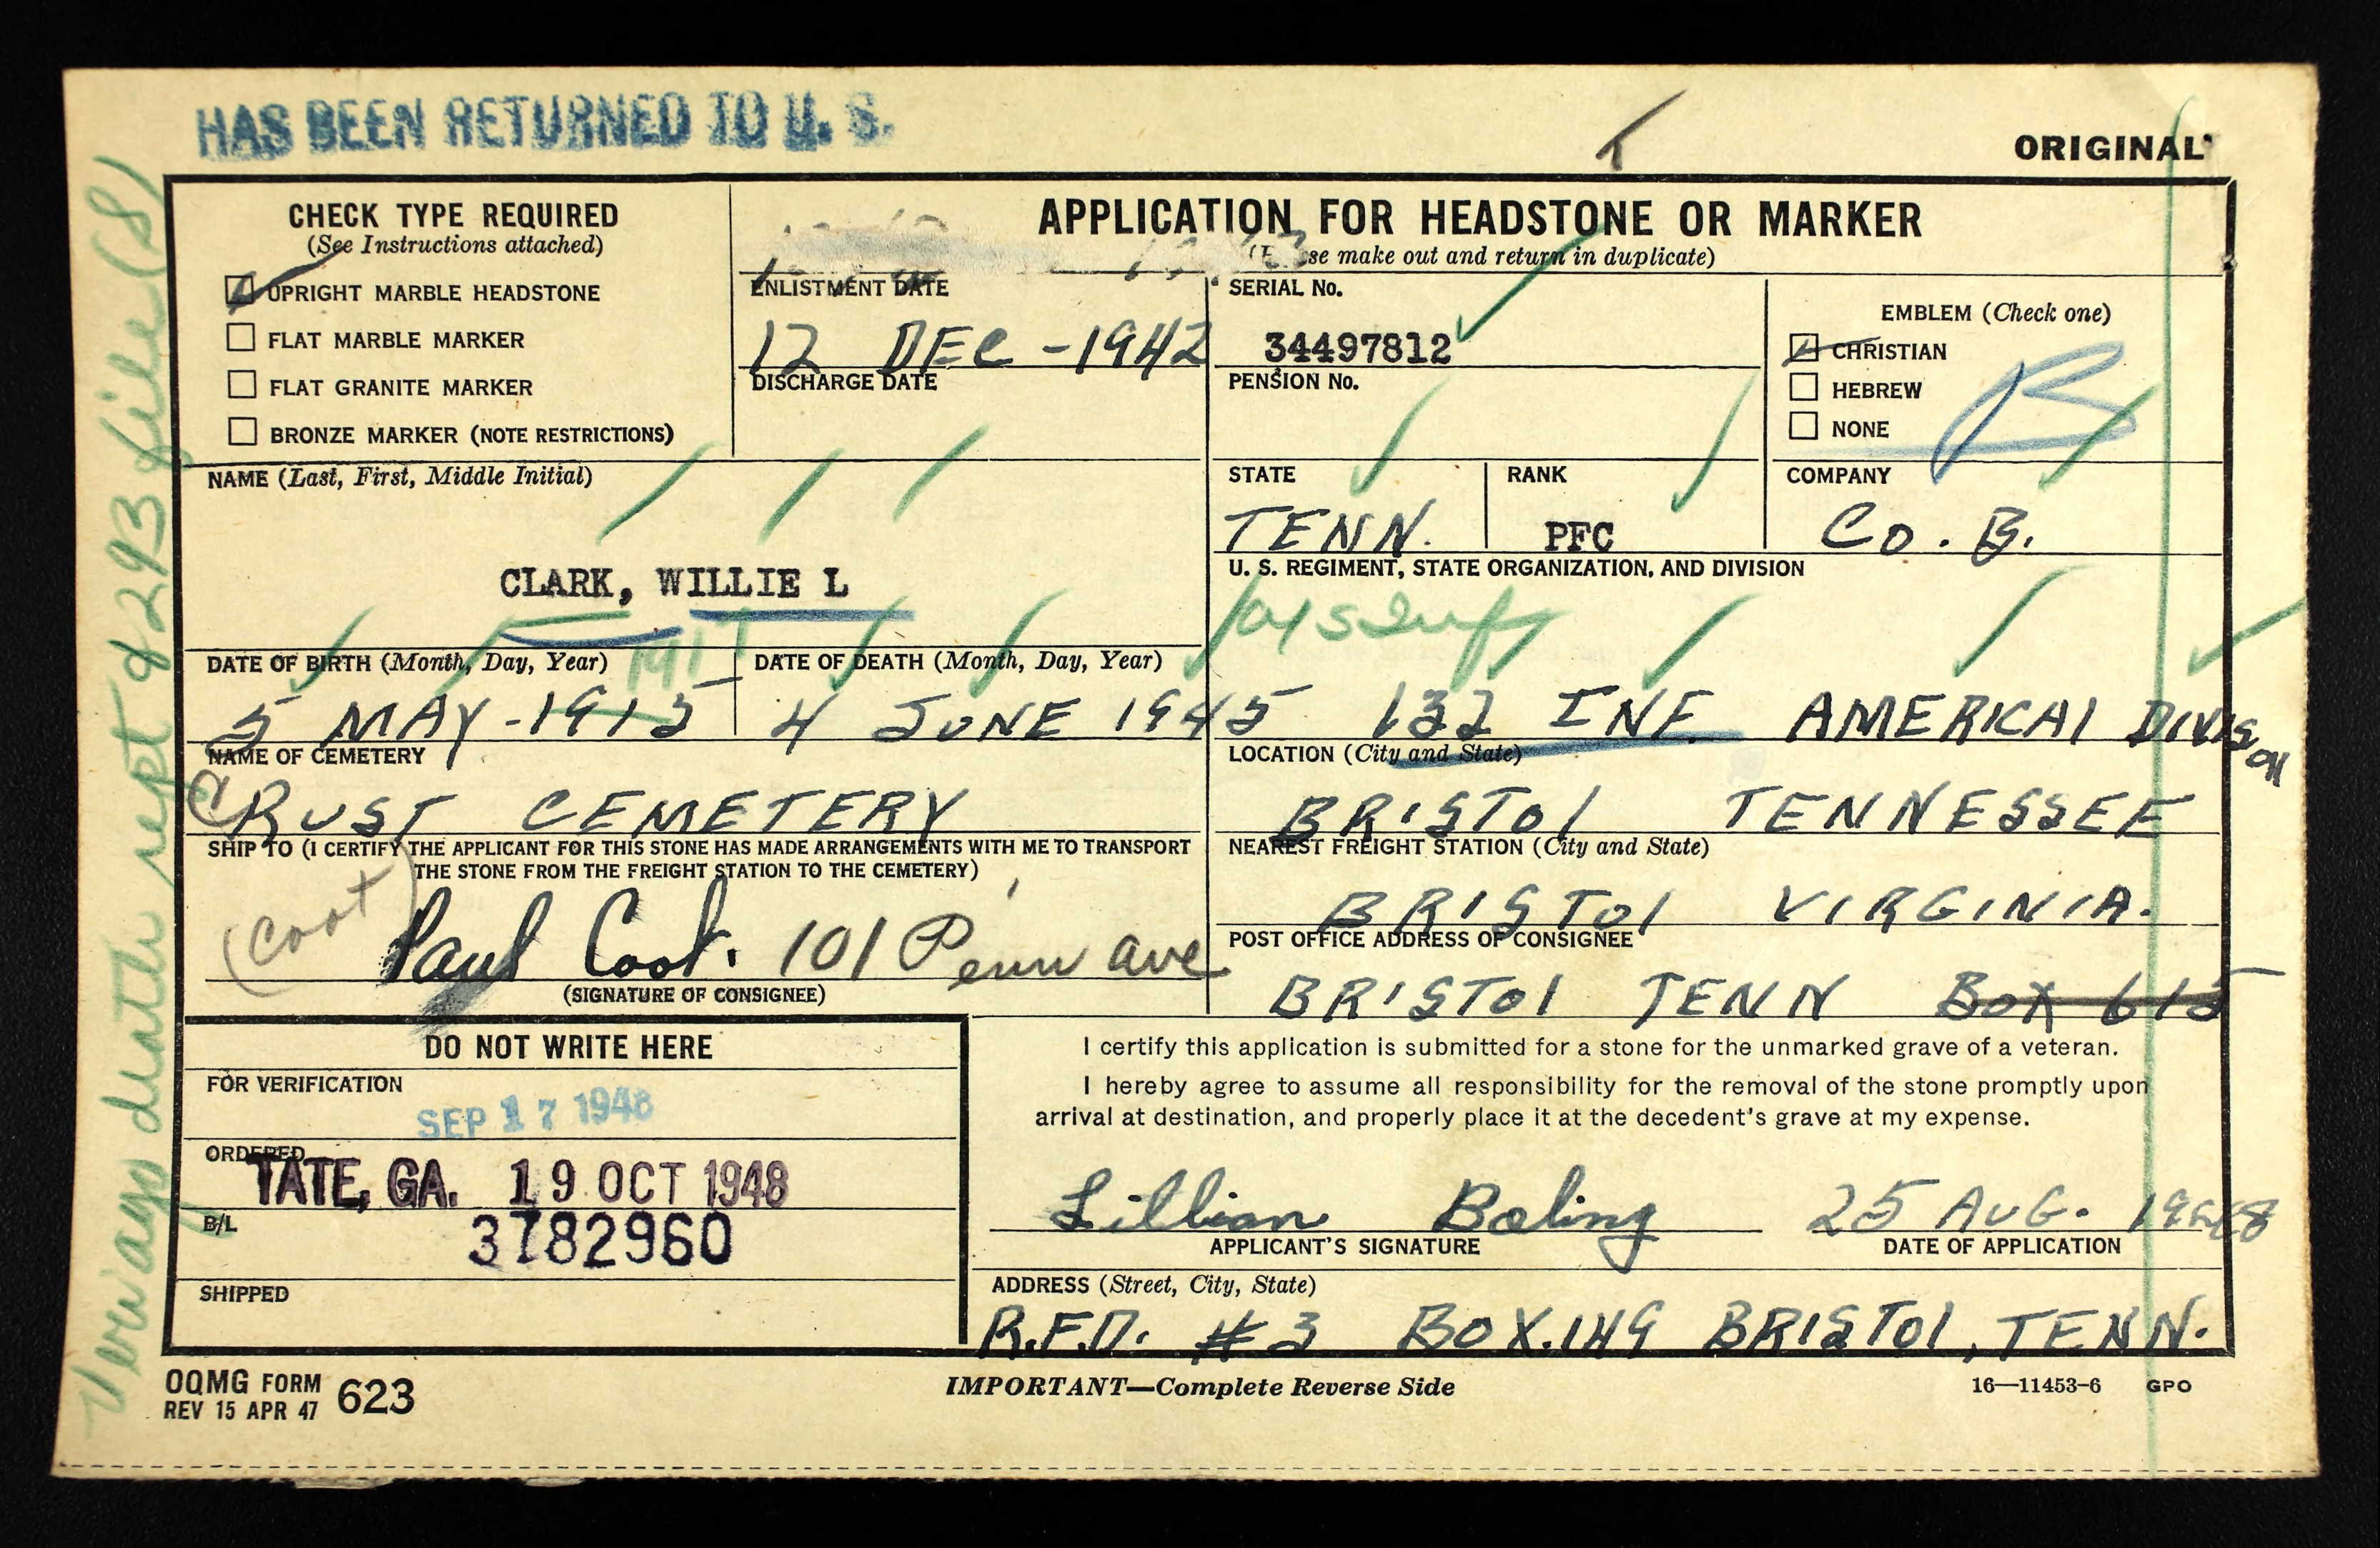 HAS BEEN RETURNED TO U. S.
ORIGINAL
CHECK TYPE REQUIRED
(See Instructions attached)
UPRIGHT MARBLE HEADSTONE
FLAT MARBLE MARKER
FLAT GRANITE MARKER
BRONZE MARKER (NOTE RESTRICTIONS)
APPLICATION FOR HEADSTONE OR MARKER
se make out and return in duplicate)
ENLISTMENT DATE
12 DEC - 1942
DISCHARGE DATE
SERIAL No.
34497812
PENSION No.
EMBLEM (Check one)
CHRISTIAN
HEBREW
NONE
B
NAME (Last, First, Middle Initial)
CLARK, WILLIE L
STATE
TENN.
RANK
PFC
COMPANY
Co. B.
U. S. REGIMENT, STATE ORGANIZATION, AND DIVISION
132 INF. AMERICAl DIVISON
DATE OF BIRTH (Month, Day, Year)
1917
5 MAY - 1915
DATE OF DEATH (Month, Day, Year)
4 JUNE 1945
NAME OF CEMETERY
RUST CEMETERY
LOCATION (City and State)
BRISTOl TENNESSEE
SHIP TO (I CERTIFY THE APPLICANT FOR THIS STONE HAS MADE ARRANGEMENTS WITH ME TO TRANSPORT
THE STONE FROM THE FREIGHT STATION TO THE CEMETERY)
(Coot)
Paul Coot. 101 Penn ave
(SIGNATURE OF CONSIGNEE)
NEAREST FREIGHT STATION (City and State)
BRISTOl VIRGINIA.
POST OFFICE ADDRESS OF CONSIGNEE
BRISTOl TENN Box 615
DO NOT WRITE HERE
FOR VERIFICATION
SEP 17 1948
ORDERED
TATE, GA. 19 OCT 1948
B/L
3782960
SHIPPED
I certify this application is submitted for a stone for the unmarked grave of a veteran.
I hereby agree to assume all responsibility for the removal of the stone promptly upon
arrival at destination, and properly place it at the decedent's grave at my expense.
Lillian Boling 25 AUG. 1948
APPLICANT'S SIGNATURE
DATE OF APPLICATION
ADDRESS (Street, City, State)
R.F.D. #3 BOX.149 BRISTOl, TENN.
OQMG FORM 623
REV 15 APR 47
IMPORTANT—Complete Reverse Side
16—11453-6 GPO
death rept & 293 file (8)